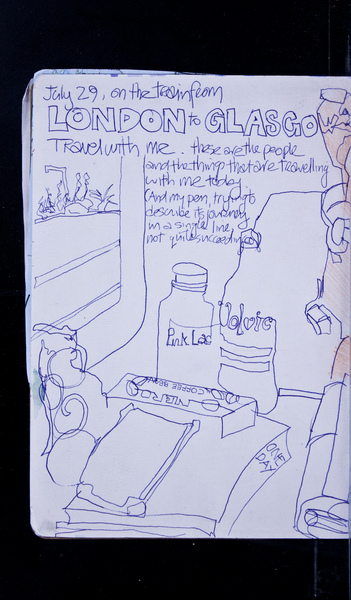 July 29, on the train from
LONDON to GLASGOW
Travel with me. these are the people
and the things that are travelling
with me today.
(And my pen, trying to
describe its journey
in a single line,
not quite succeeding)
Volvic
Pink Lad
COFFEE
NERO
ONE
DAY